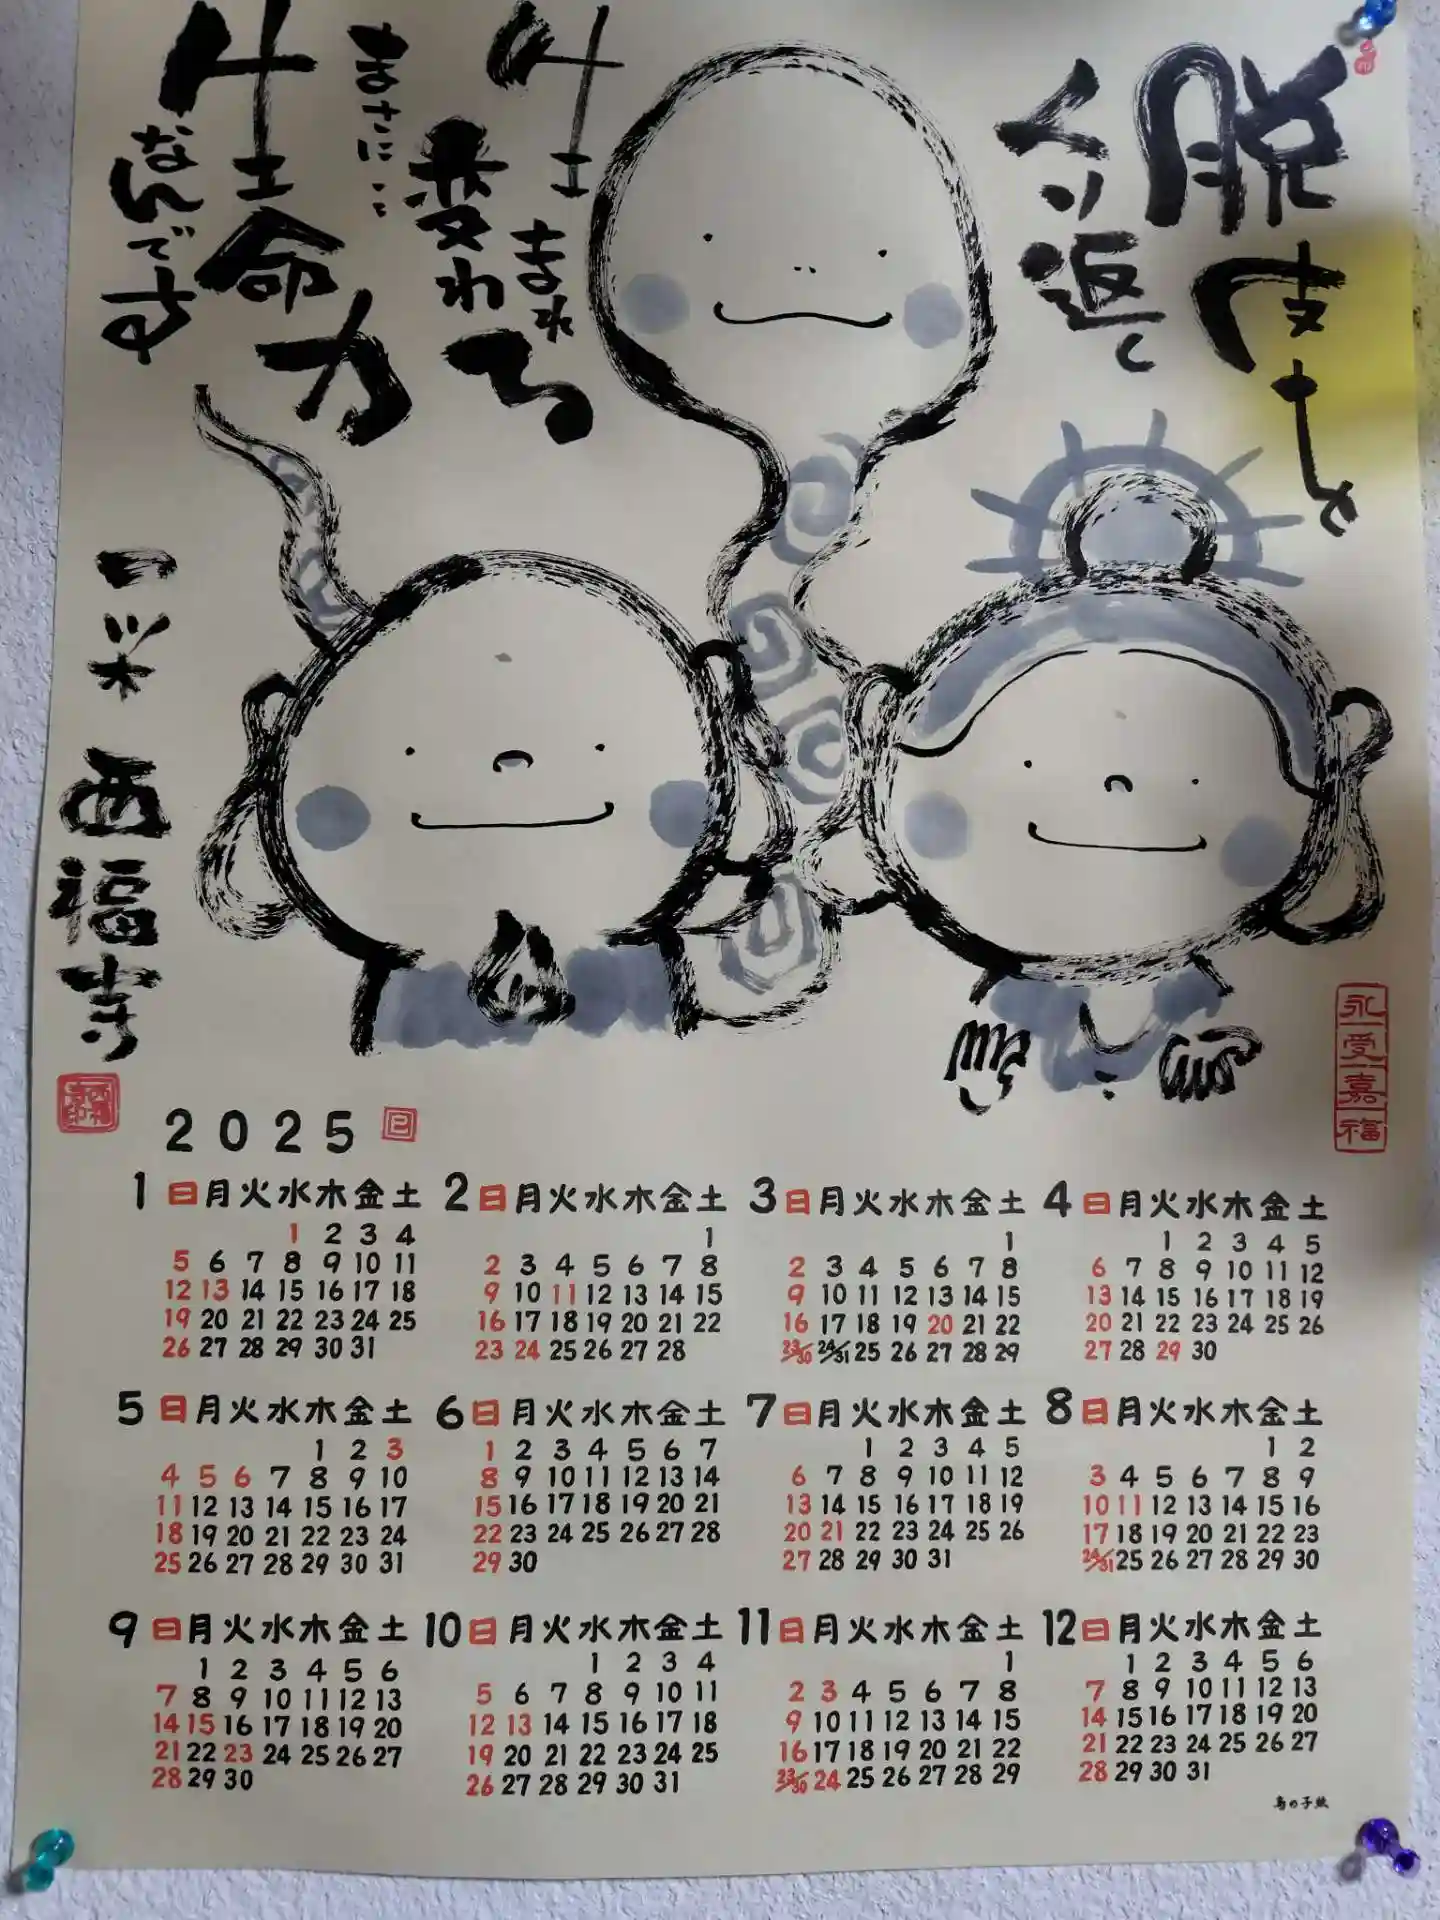 脱皮を
くり返し
生まれ
変わる
まさに…
生命力
なんです
日栄 西福寺
永受嘉福
2025 巳
1 日月火水木金土
1 2 3 4
5 6 7 8 9 10 11
12 13 14 15 16 17 18
19 20 21 22 23 24 25
26 27 28 29 30 31
2 日月火水木金土
1
2 3 4 5 6 7 8
9 10 11 12 13 14 15
16 17 18 19 20 21 22
23 24 25 26 27 28
3 日月火水木金土
1
2 3 4 5 6 7 8
9 10 11 12 13 14 15
16 17 18 19 20 21 22
23/30 24/31 25 26 27 28 29
4 日月火水木金土
1 2 3 4 5
6 7 8 9 10 11 12
13 14 15 16 17 18 19
20 21 22 23 24 25 26
27 28 29 30
5 日月火水木金土
1 2 3
4 5 6 7 8 9 10
11 12 13 14 15 16 17
18 19 20 21 22 23 24
25 26 27 28 29 30 31
6 日月火水木金土
1 2 3 4 5 6 7
8 9 10 11 12 13 14
15 16 17 18 19 20 21
22 23 24 25 26 27 28
29 30
7 日月火水木金土
1 2 3 4 5
6 7 8 9 10 11 12
13 14 15 16 17 18 19
20 21 22 23 24 25 26
27 28 29 30 31
8 日月火水木金土
1 2
3 4 5 6 7 8 9
10 11 12 13 14 15 16
17 18 19 20 21 22 23
24/31 25 26 27 28 29 30
9 日月火水木金土
1 2 3 4 5 6
7 8 9 10 11 12 13
14 15 16 17 18 19 20
21 22 23 24 25 26 27
28 29 30
10 日月火水木金土
1 2 3 4
5 6 7 8 9 10 11
12 13 14 15 16 17 18
19 20 21 22 23 24 25
26 27 28 29 30 31
11 日月火水木金土
1
2 3 4 5 6 7 8
9 10 11 12 13 14 15
16 17 18 19 20 21 22
23/30 24 25 26 27 28 29
12 日月火水木金土
1 2 3 4 5 6
7 8 9 10 11 12 13
14 15 16 17 18 19 20
21 22 23 24 25 26 27
28 29 30 31
鳥の子紙